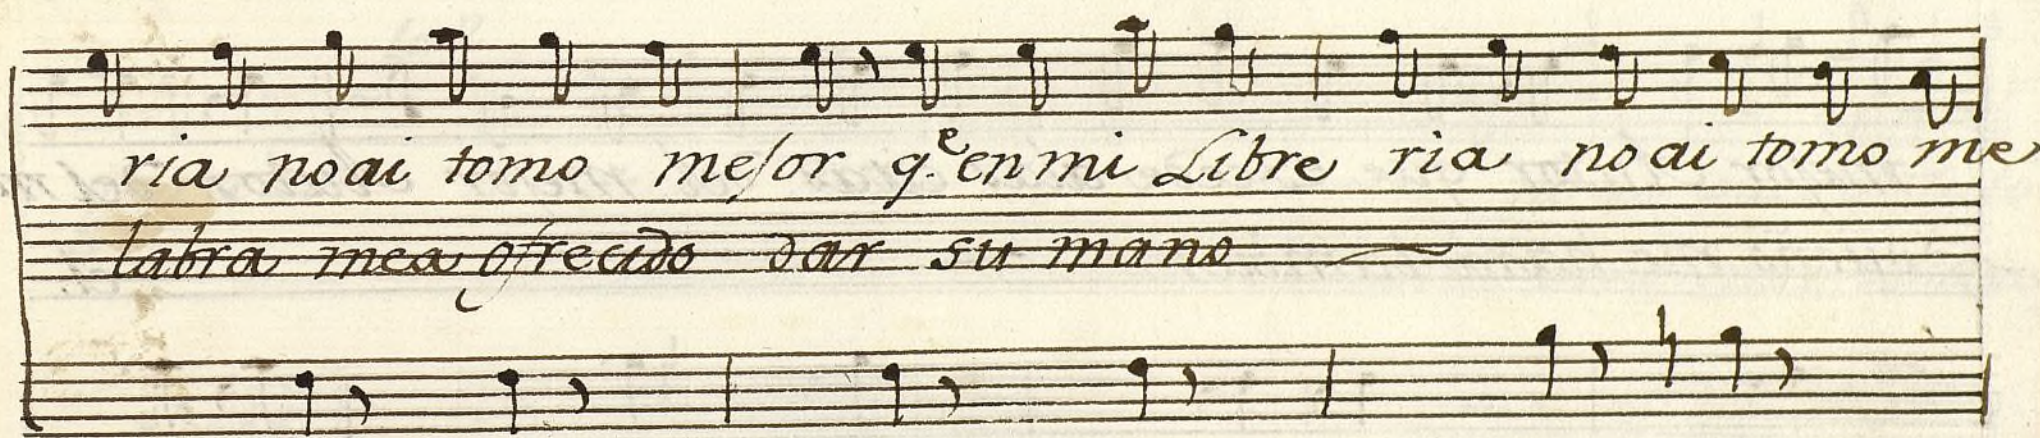 ria no ai tomo mejor q.e en mi Libre ria no ai tomo me
labra mea ofrecido dar su mano